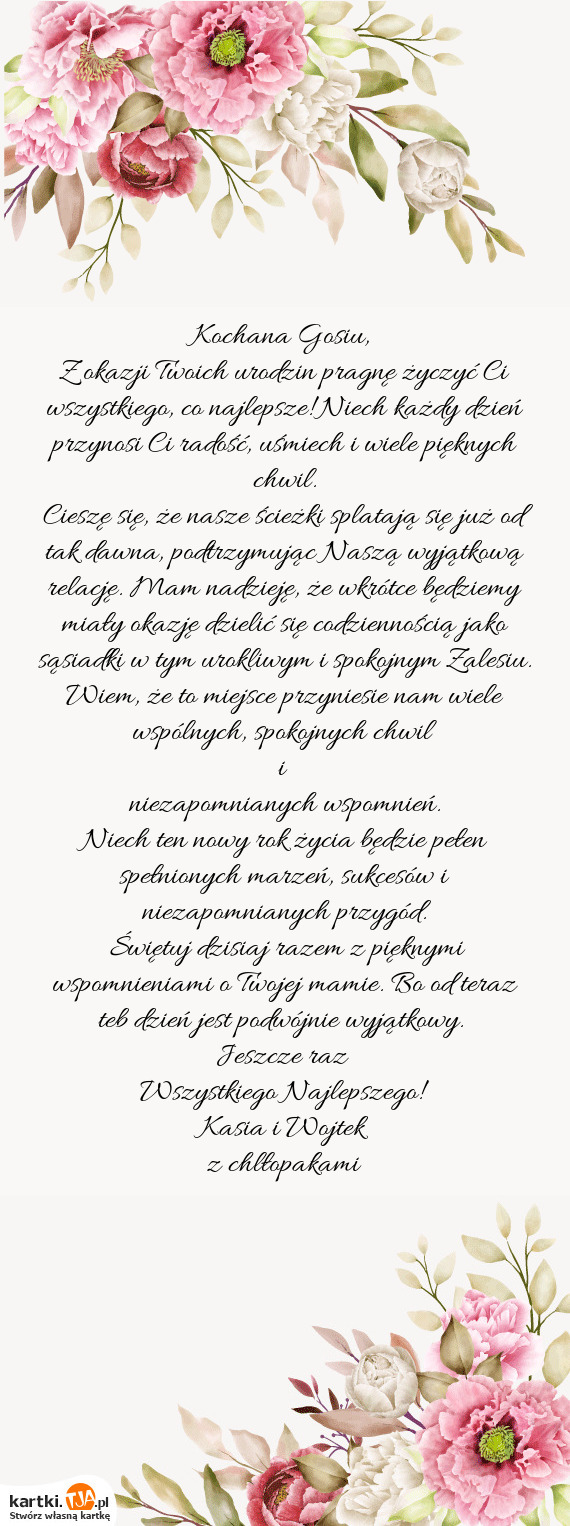 Kochana Gosiu,
Z okazji Twoich urodzin pragnę życzyć Ci
wszystkiego, co najlepsze! Niech każdy dzień
przynosi Ci radość, uśmiech i wiele pięknych
chwil.
Cieszę się, że nasze ścieżki splatają się już od
tak dawna, podtrzymując Naszą wyjątkową
relację. Mam nadzieję, że wkrótce będziemy
miały okazję dzielić się codziennością jako
sąsiadki w tym urokliwym i spokojnym Zalesiu.
Wiem, że to miejsce przyniesie nam wiele
wspólnych, spokojnych chwil
i
niezapomnianych wspomnień.
Niech ten nowy rok życia będzie pełen
spełnionych marzeń, sukcesów i
niezapomnianych przygód.
Świętuj dzisiaj razem z pięknymi
wspomnieniami o Twojej mamie. Bo od teraz
teb dzień jest podwójnie wyjątkowy.
Jeszcze raz
Wszystkiego Najlepszego!
Kasia i Wojtek
z chlłopakami
kartki.TJA.pl
Stwórz własną kartkę